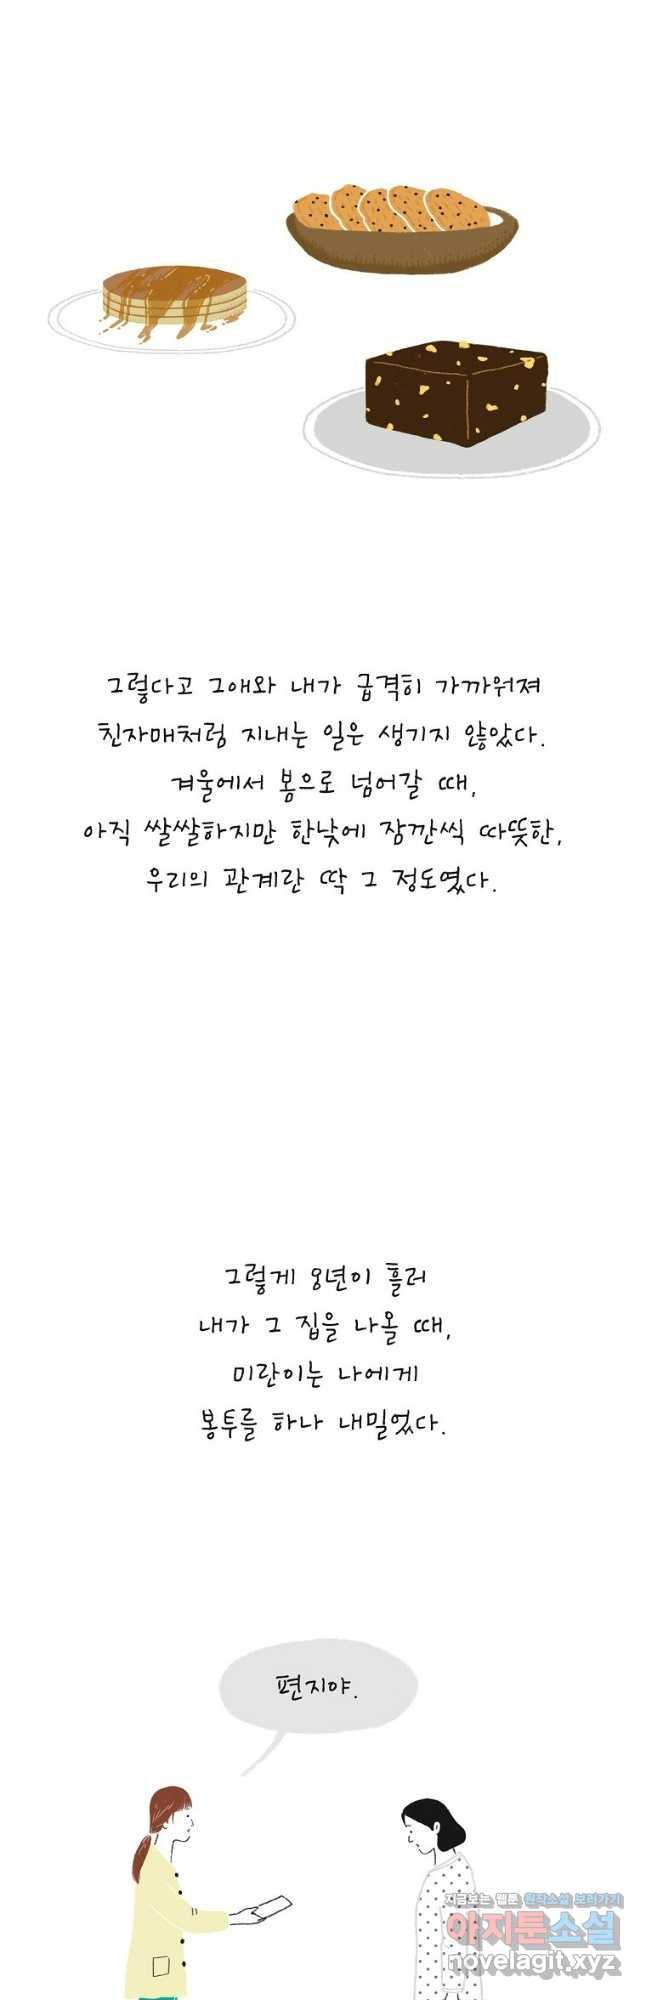 그렇다고 그애와 내가 급격히 가까워져
친자매처럼 지내는 일은 생기지 않았다.
겨울에서 봄으로 넘어갈 때,
아직 쌀쌀하지만 한낮에 잠깐씩 따뜻한,
우리의 관계란 딱 그 정도였다.
그렇게 8년이 흘러
내가 그 집을 나올 때,
미란이는 나에게
봉투를 하나 내밀었다.
편지야.
지금보는 웹툰 원작소설 보러가기
아지툰소설
novelagit.xyz